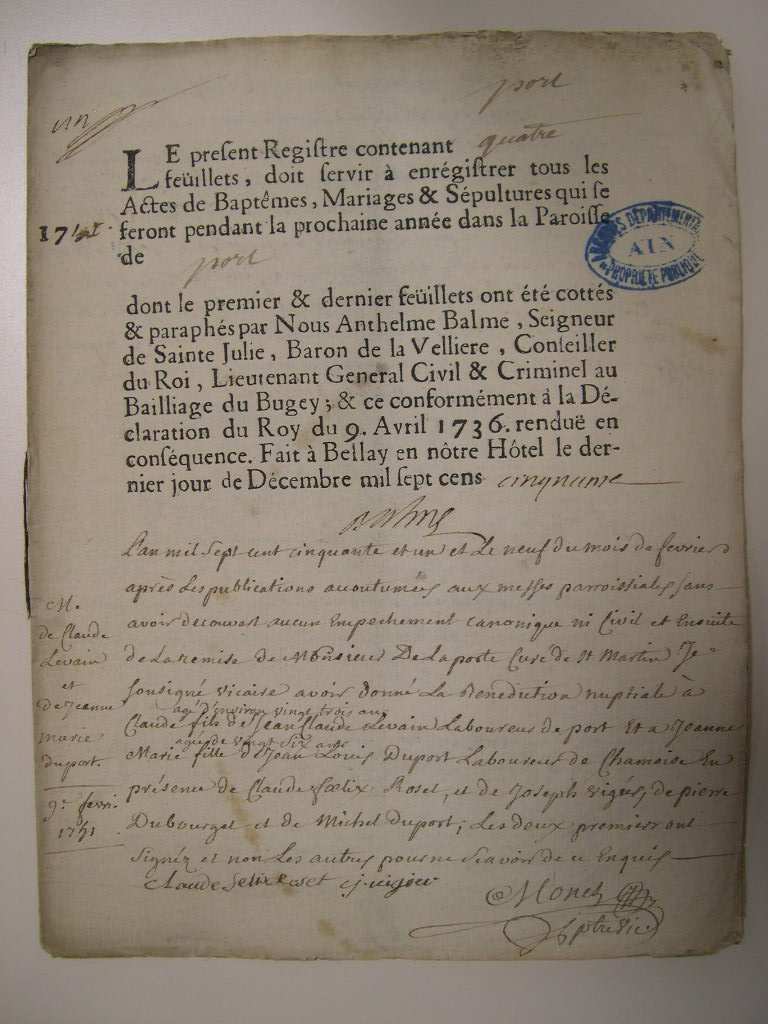 un
port
LE present Registre contenant quatre
feüillets, doit servir à enrégistrer tous les
Actes de Baptêmes, Mariages & Sépultures qui se
feront pendant la prochaine année dans la Paroisse
de port
1751.
ARCHIVES DÉPARTEMENTALES
AIN
PROPRIÉTÉ PUBLIQUE
dont le premier & dernier feüillets ont été cottés
& paraphés par Nous Anthelme Balme, Seigneur
de Sainte Julie, Baron de la Velliere, Conseiller
du Roi, Lieutenant General Civil & Criminel au
Bailliage du Bugey; & ce conformément à la Dé-
claration du Roy du 9. Avril 1736. renduë en
conséquence. Fait à Bellay en nôtre Hôtel le der-
nier jour de Décembre mil sept cens cinquante
Balme
L'an mil sept cent cinquante et un et Le neuf du mois de fevrier
après Les publications acoutumées aux messes parroissiales sans
avoir decouvert aucun Empechement canonique ni Civil et Ensuite
de La remise de Monsieur De Laposte Curé de St Martin Je
Soussigné vicaire avoir donné La Benediction nuptiale à
agé d'environ vingt trois ans
Claude fils de Jean Claude Levain Laboureur de port Et a Jeanne
agée de vingt six ans
Marie fille d Jean Louis Duport Laboureur de Chamoise En
présence de Claude foelix Roset, et de Joseph vigier, de pierre
Dubourget et de Michel Duport; Les deux premiers ont
Signéz et non Les autres pour ne Scavoir de ce Enquis
Claude felix roset j. vigier
M.
de Claude
Levain
et
de Jeanne
marie
duport.
9e fevri.
1751